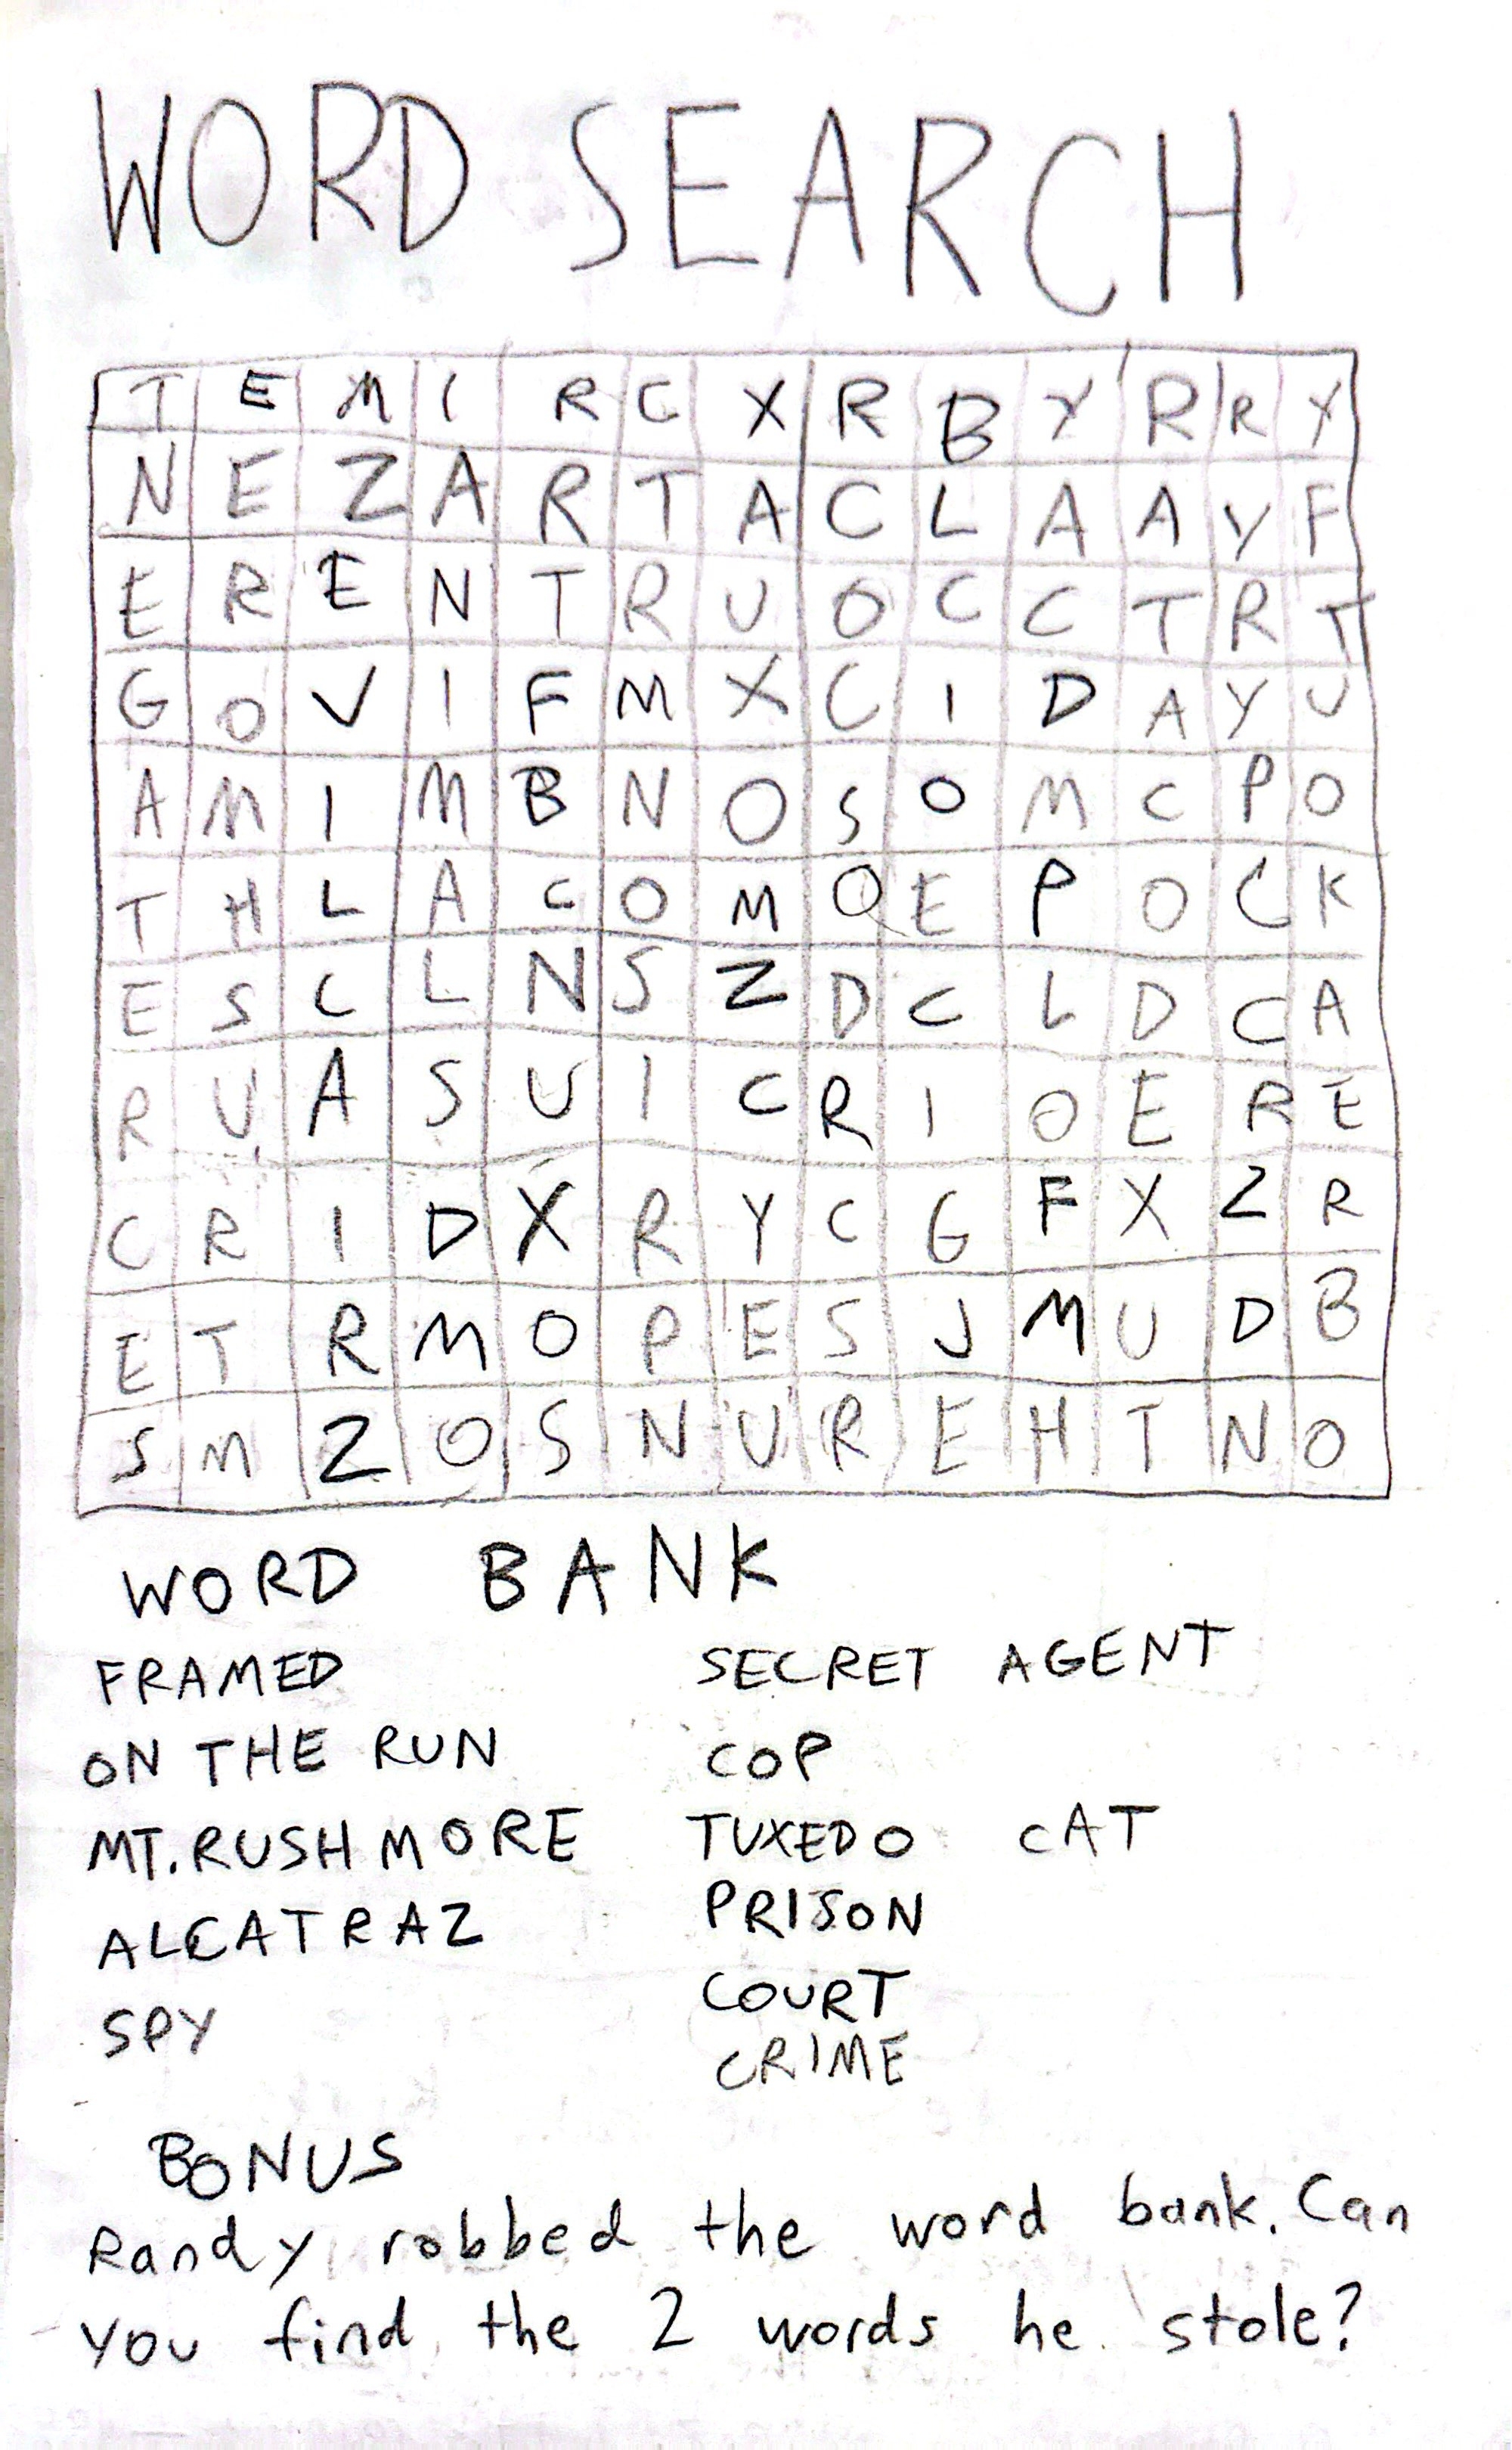 WORD SEARCH
T E M I R C X R B Y R R Y
N E Z A R T A C L A A Y F
E R E N T R U O C C T R T
G O V I F M X C I D A Y U
A M I M B N O S O M C P O
T H L A C O M O E P O C K
E S C L N S Z D C L D C A
R U A S U I C R I O E R E
C R I D X R Y C G F X Z R
E T R M O P E S J M U D B
S M Z O S N U R E H T N O
WORD BANK
FRAMED SECRET AGENT
ON THE RUN COP
MT. RUSHMORE TUXEDO CAT
ALCATRAZ PRISON
SPY COURT
CRIME
BONUS
Randy robbed the word bank. Can
you find the 2 words he stole?